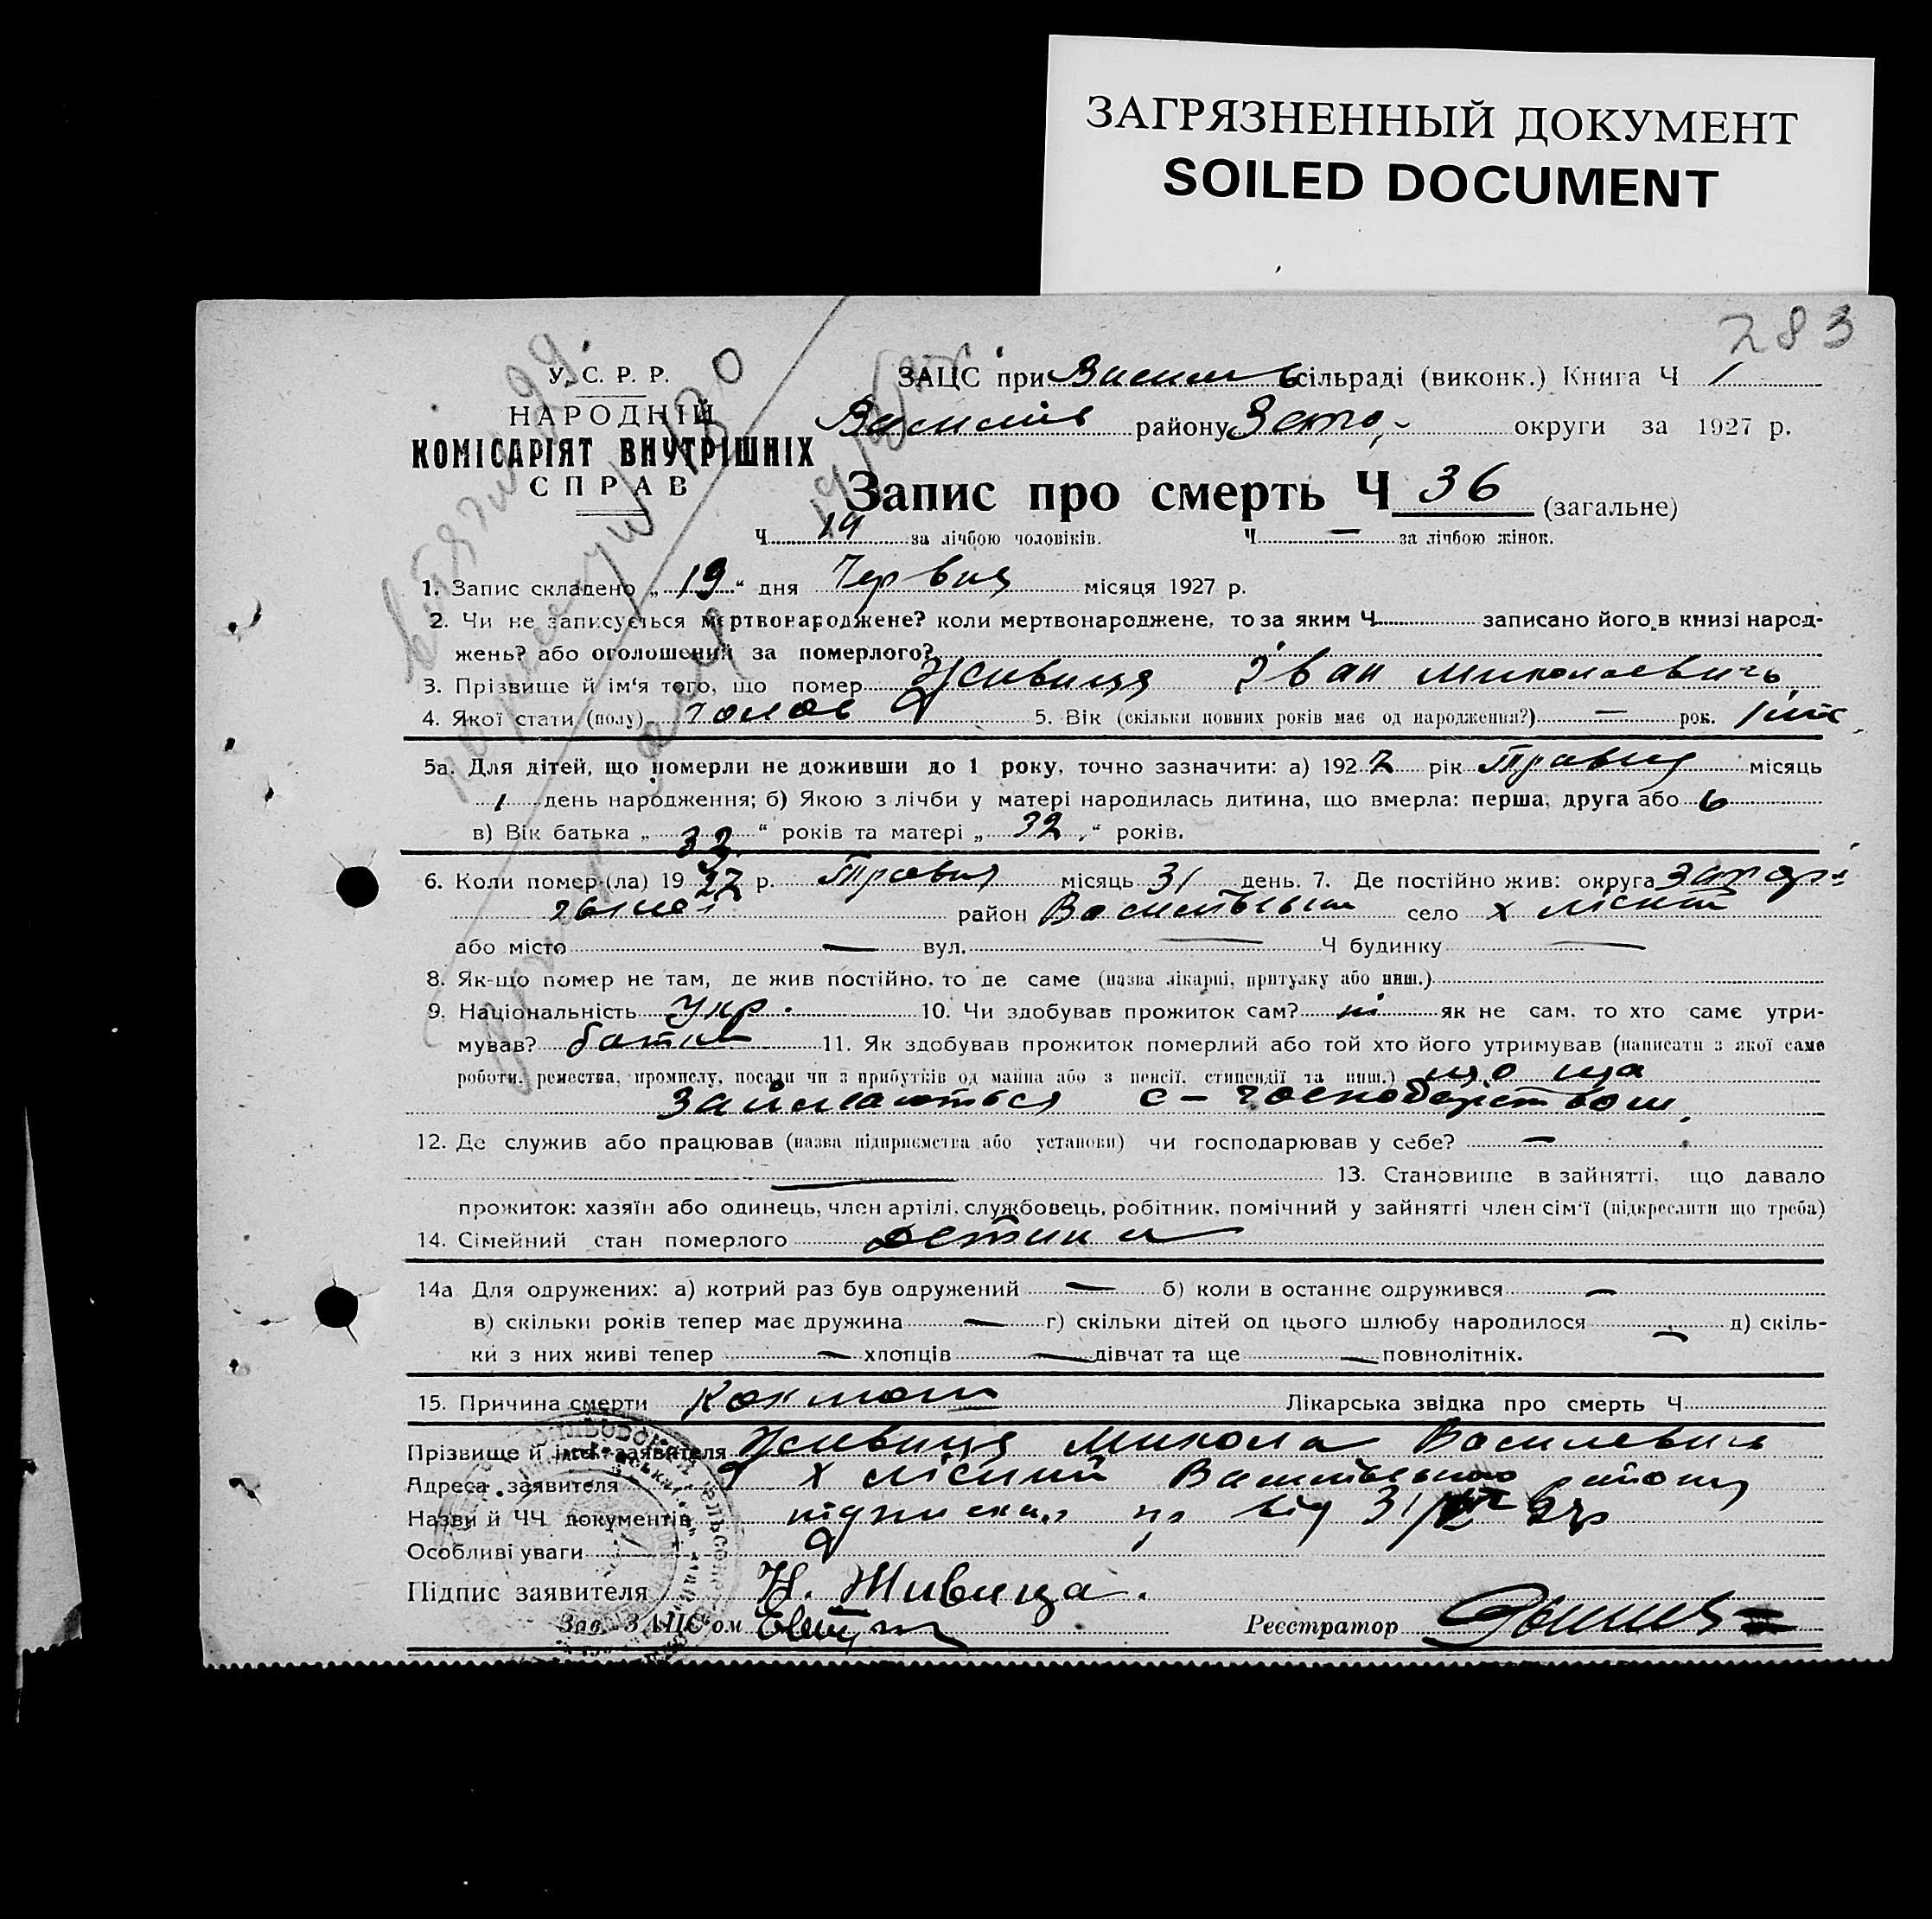 ЗАГРЯЗНЕННЫЙ ДОКУМЕНТ
SOILED DOCUMENT
283
У. С. Р. Р.
НАРОДНІЙ
КОМІСАРІЯТ ВНУТРІШНІХ
СПРАВ
ЗАЦС при сільраді (виконк.) Книга Ч 1
району Запо округи за 1927 р.
Запис про смерть Ч 36 (загальне)
Ч 19 за лічбою чоловіків. Ч — за лічбою жінок.
1. Запис складено „ 19 “ дня Червня місяця 1927 р.
2. Чи не записується мертвонароджене? коли мертвонароджене, то за яким Ч записано його в книзі народ-
жень? або оголошений за померлого?
3. Прізвище й ім'я того, що помер Живиця Іван Миколаевичь
4. Якої стати (полу) чолов 5. Вік (скільки повних років має од народження?) — рок. 1 міс
5а. Для дітей, що померли не доживши до 1 року, точно зазначити: а) 1927 рік Травня місяць
1 день народження; б) Якою з лічби у матері народилась дитина, що вмерла: перша, друга або 6
в) Вік батька „ 32 “ років та матері „ 32 “ років.
6. Коли помер (ла) 1927 р. Травня місяць 31 день. 7. Де постійно жив: округа Запорі-
район село х Лісний
або місто — вул. — Ч будинку —
8. Як-що помер не там, де жив постійно, то де саме (назва лікарні, притулку або инш.)
9. Національність Укр. 10. Чи здобував прожиток сам? ні як не сам, то хто саме утри-
мував? батьки 11. Як здобував прожиток померлий або той хто його утримував (написати з якої саме
роботи, ремества, промислу, посади чи з прибутків од майна або з пенсії, стипендії та инш.)
займаються с-господарством
12. Де служив або працював (назва підприємства або установи) чи господарював у себе? —
— 13. Становище в зайнятті, що давало
прожиток: хазяїн або одинець, член артілі, службовець, робітник, помічний у зайнятті член сім'ї (підкреслити що треба)
14. Сімейний стан померлого детина
14а Для одружених: а) котрий раз був одружений — б) коли в останнє одружився —
в) скільки років тепер має дружина — г) скільки дітей од цього шлюбу народилося — д) скіль-
ки з них живі тепер — хлопців — дівчат та ще — повнолітніх.
15. Причина смерти Коклюш Лікарська звідка про смерть Ч
Прізвище й імя заявителя Живиця Микола Василевичь
Адреса заявителя х Лісний району
Назви й ЧЧ документів від 31/
Особливі уваги
Підпис заявителя Н. Живица.
Зав. ЗАЦС'ом Реєстратор